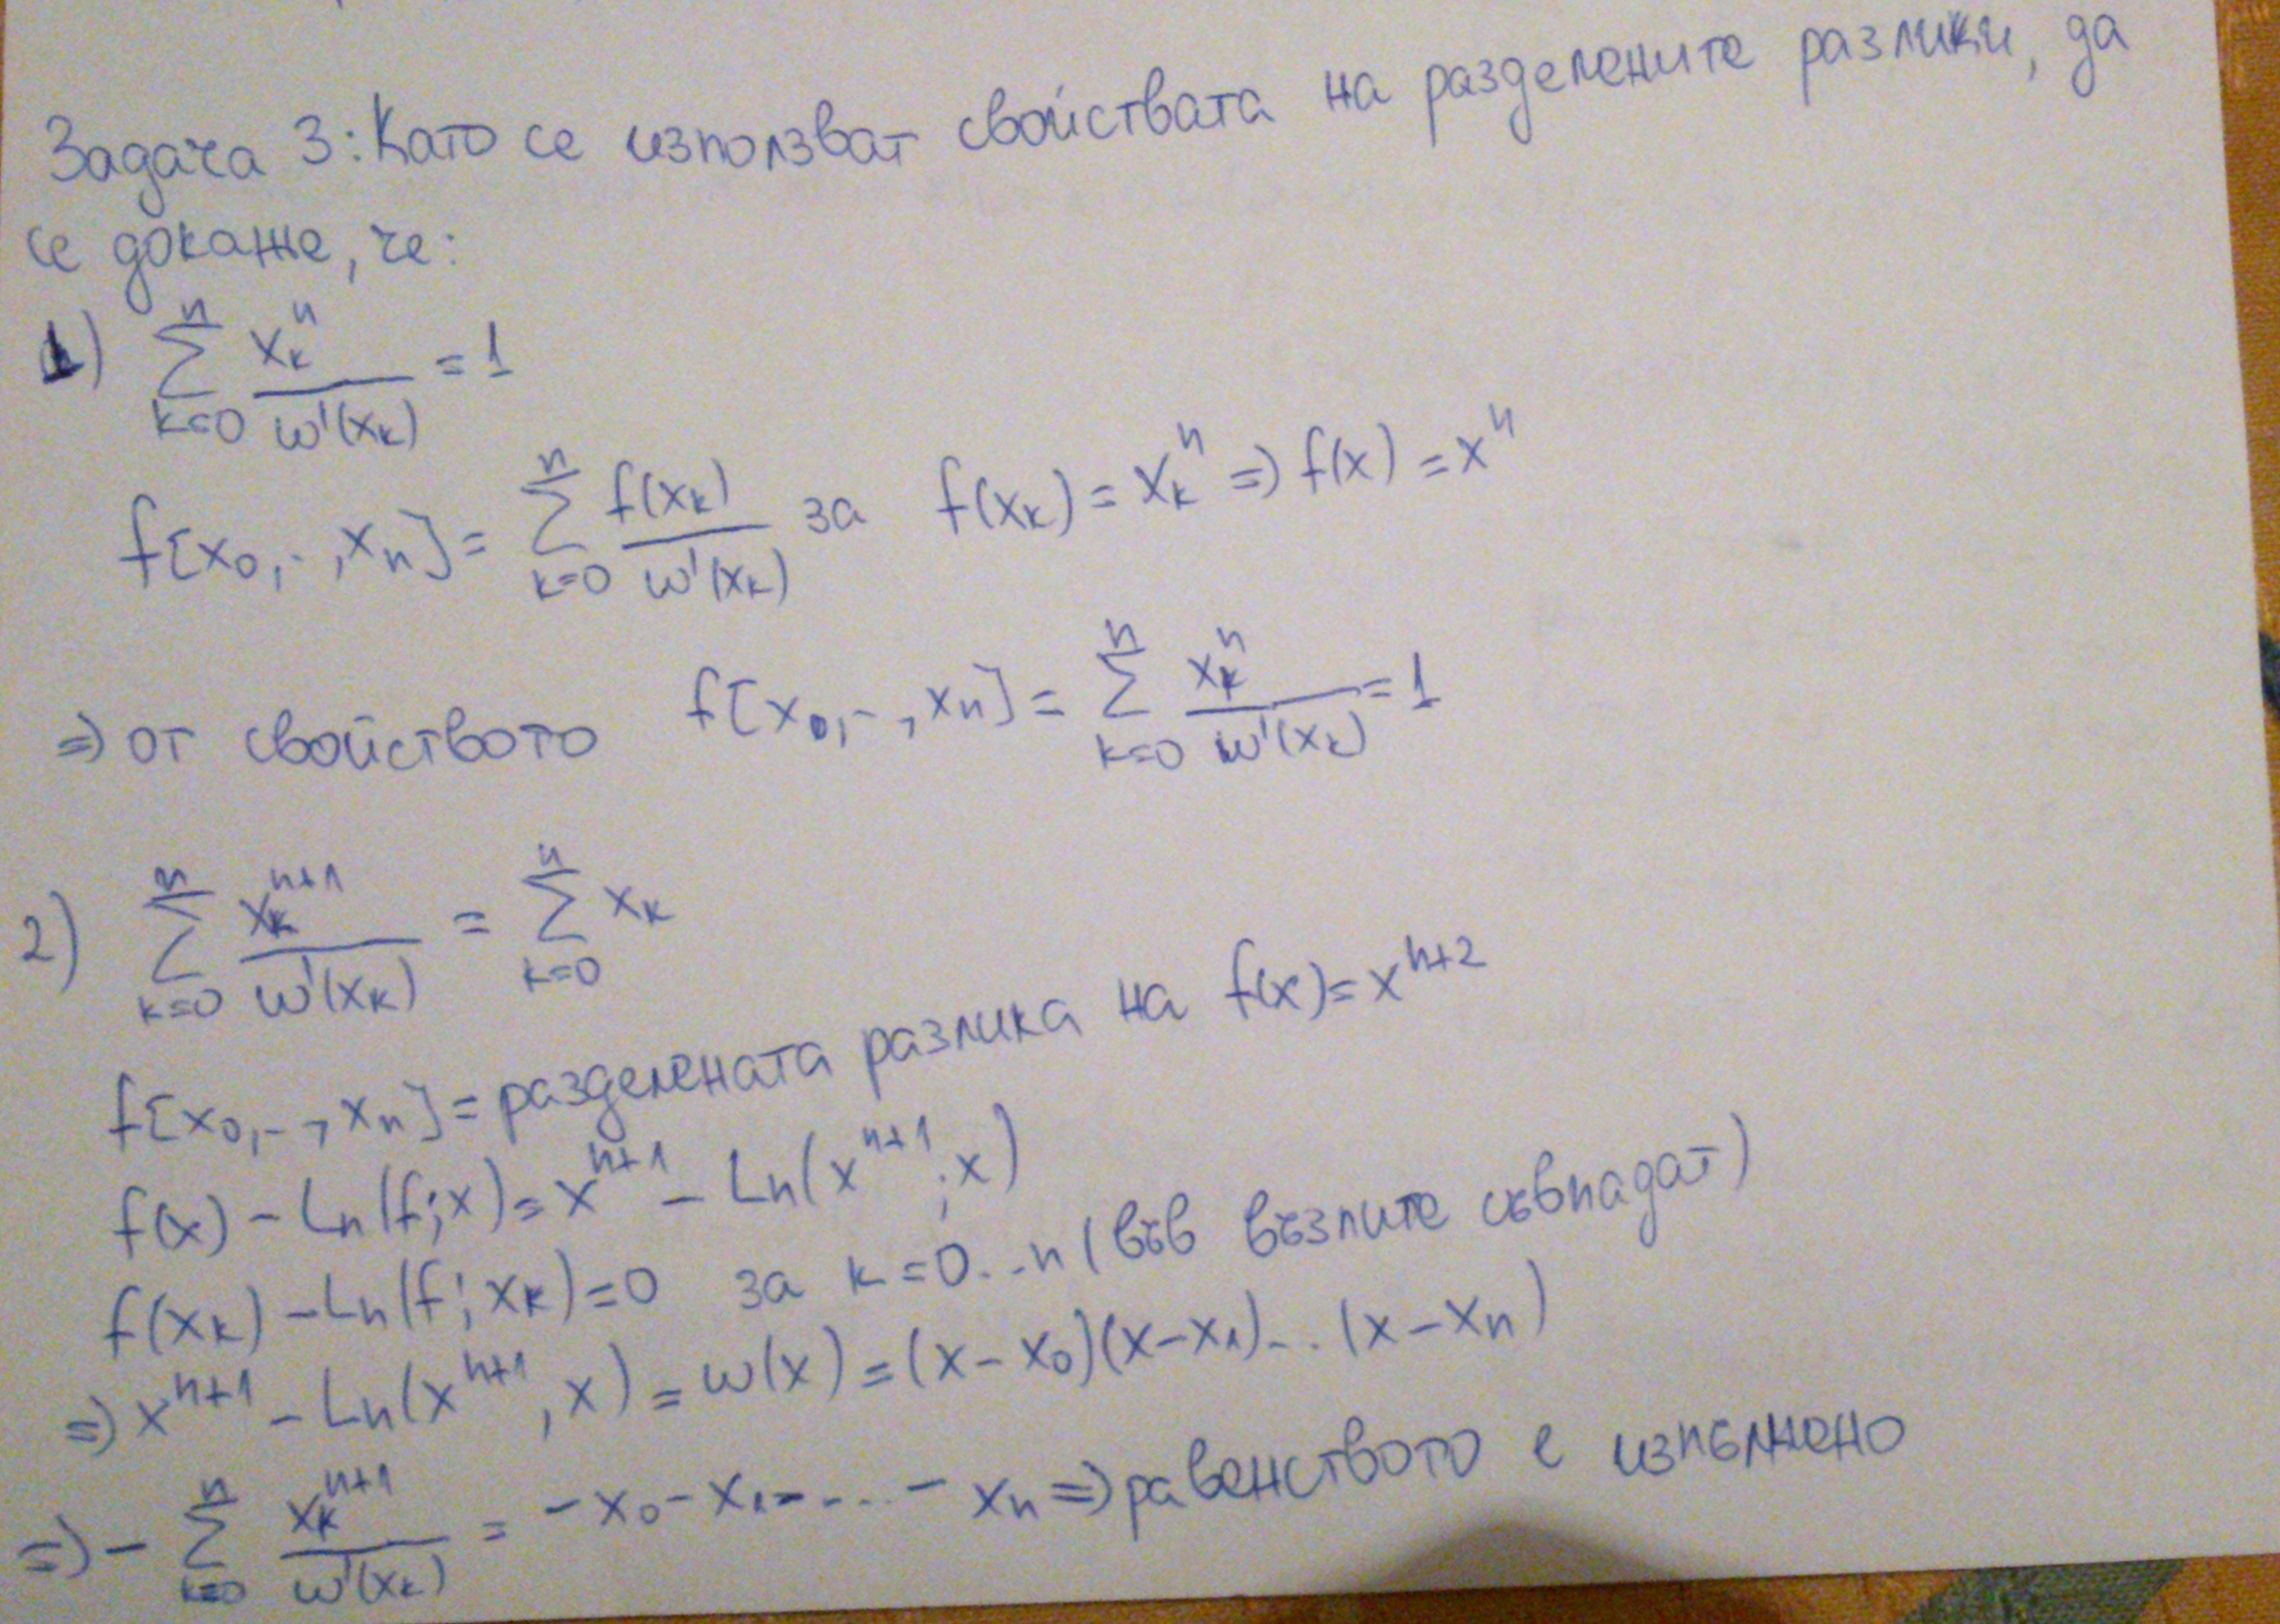 Задача 3: Като се използват свойствата на разделените разлики, да
се докаже, че:
1) \sum_{k=0}^{n} \frac{x_k^n}{ω'(x_k)} = 1
f[x_0,..,x_n] = \sum_{k=0}^{n} \frac{f(x_k)}{ω'(x_k)} за f(x_k) = x_k^n ⇒ f(x) = x^n
⇒ от свойството f[x_0,..,x_n] = \sum_{k=0}^{n} \frac{x_k^n}{ω'(x_k)} = 1
2) \sum_{k=0}^{n} \frac{x_k^{n+1}}{ω'(x_k)} = \sum_{k=0}^{n} x_k
f[x_0,..,x_n] = разделената разлика на f(x) = x^{n+2}
f(x) - Ln(f;x) = x^{n+1} - Ln(x^{n+1};x)
f(x_k) - Ln(f;x_k) = 0 за k=0...n (във възлите съвпадат)
⇒ x^{n+1} - Ln(x^{n+1},x) = ω(x) = (x-x_0)(x-x_1)...(x-x_n)
⇒ - \sum_{k=0}^{n} \frac{x_k^{n+1}}{ω'(x_k)} = -x_0 - x_1 - ... - x_n ⇒ равенството е изпълнено